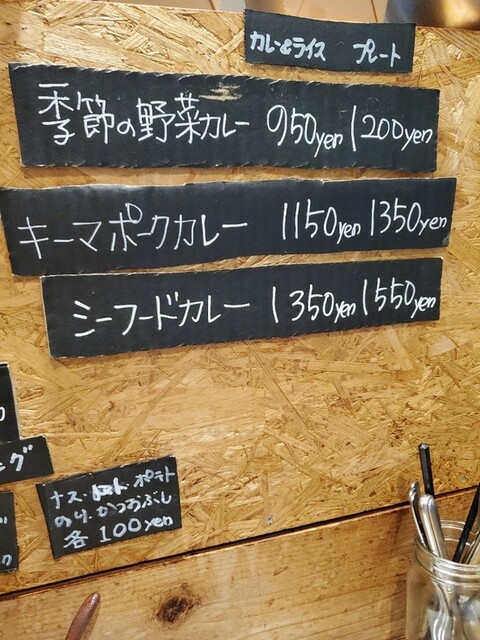 カレー&ライス プレート
季節の野菜カレー 950yen 1200yen
キーマポークカレー 1150yen 1350yen
シーフードカレー 1350yen 1550yen
ング
ナス・トマト・ポテト
のり・かつおぶし
各100yen